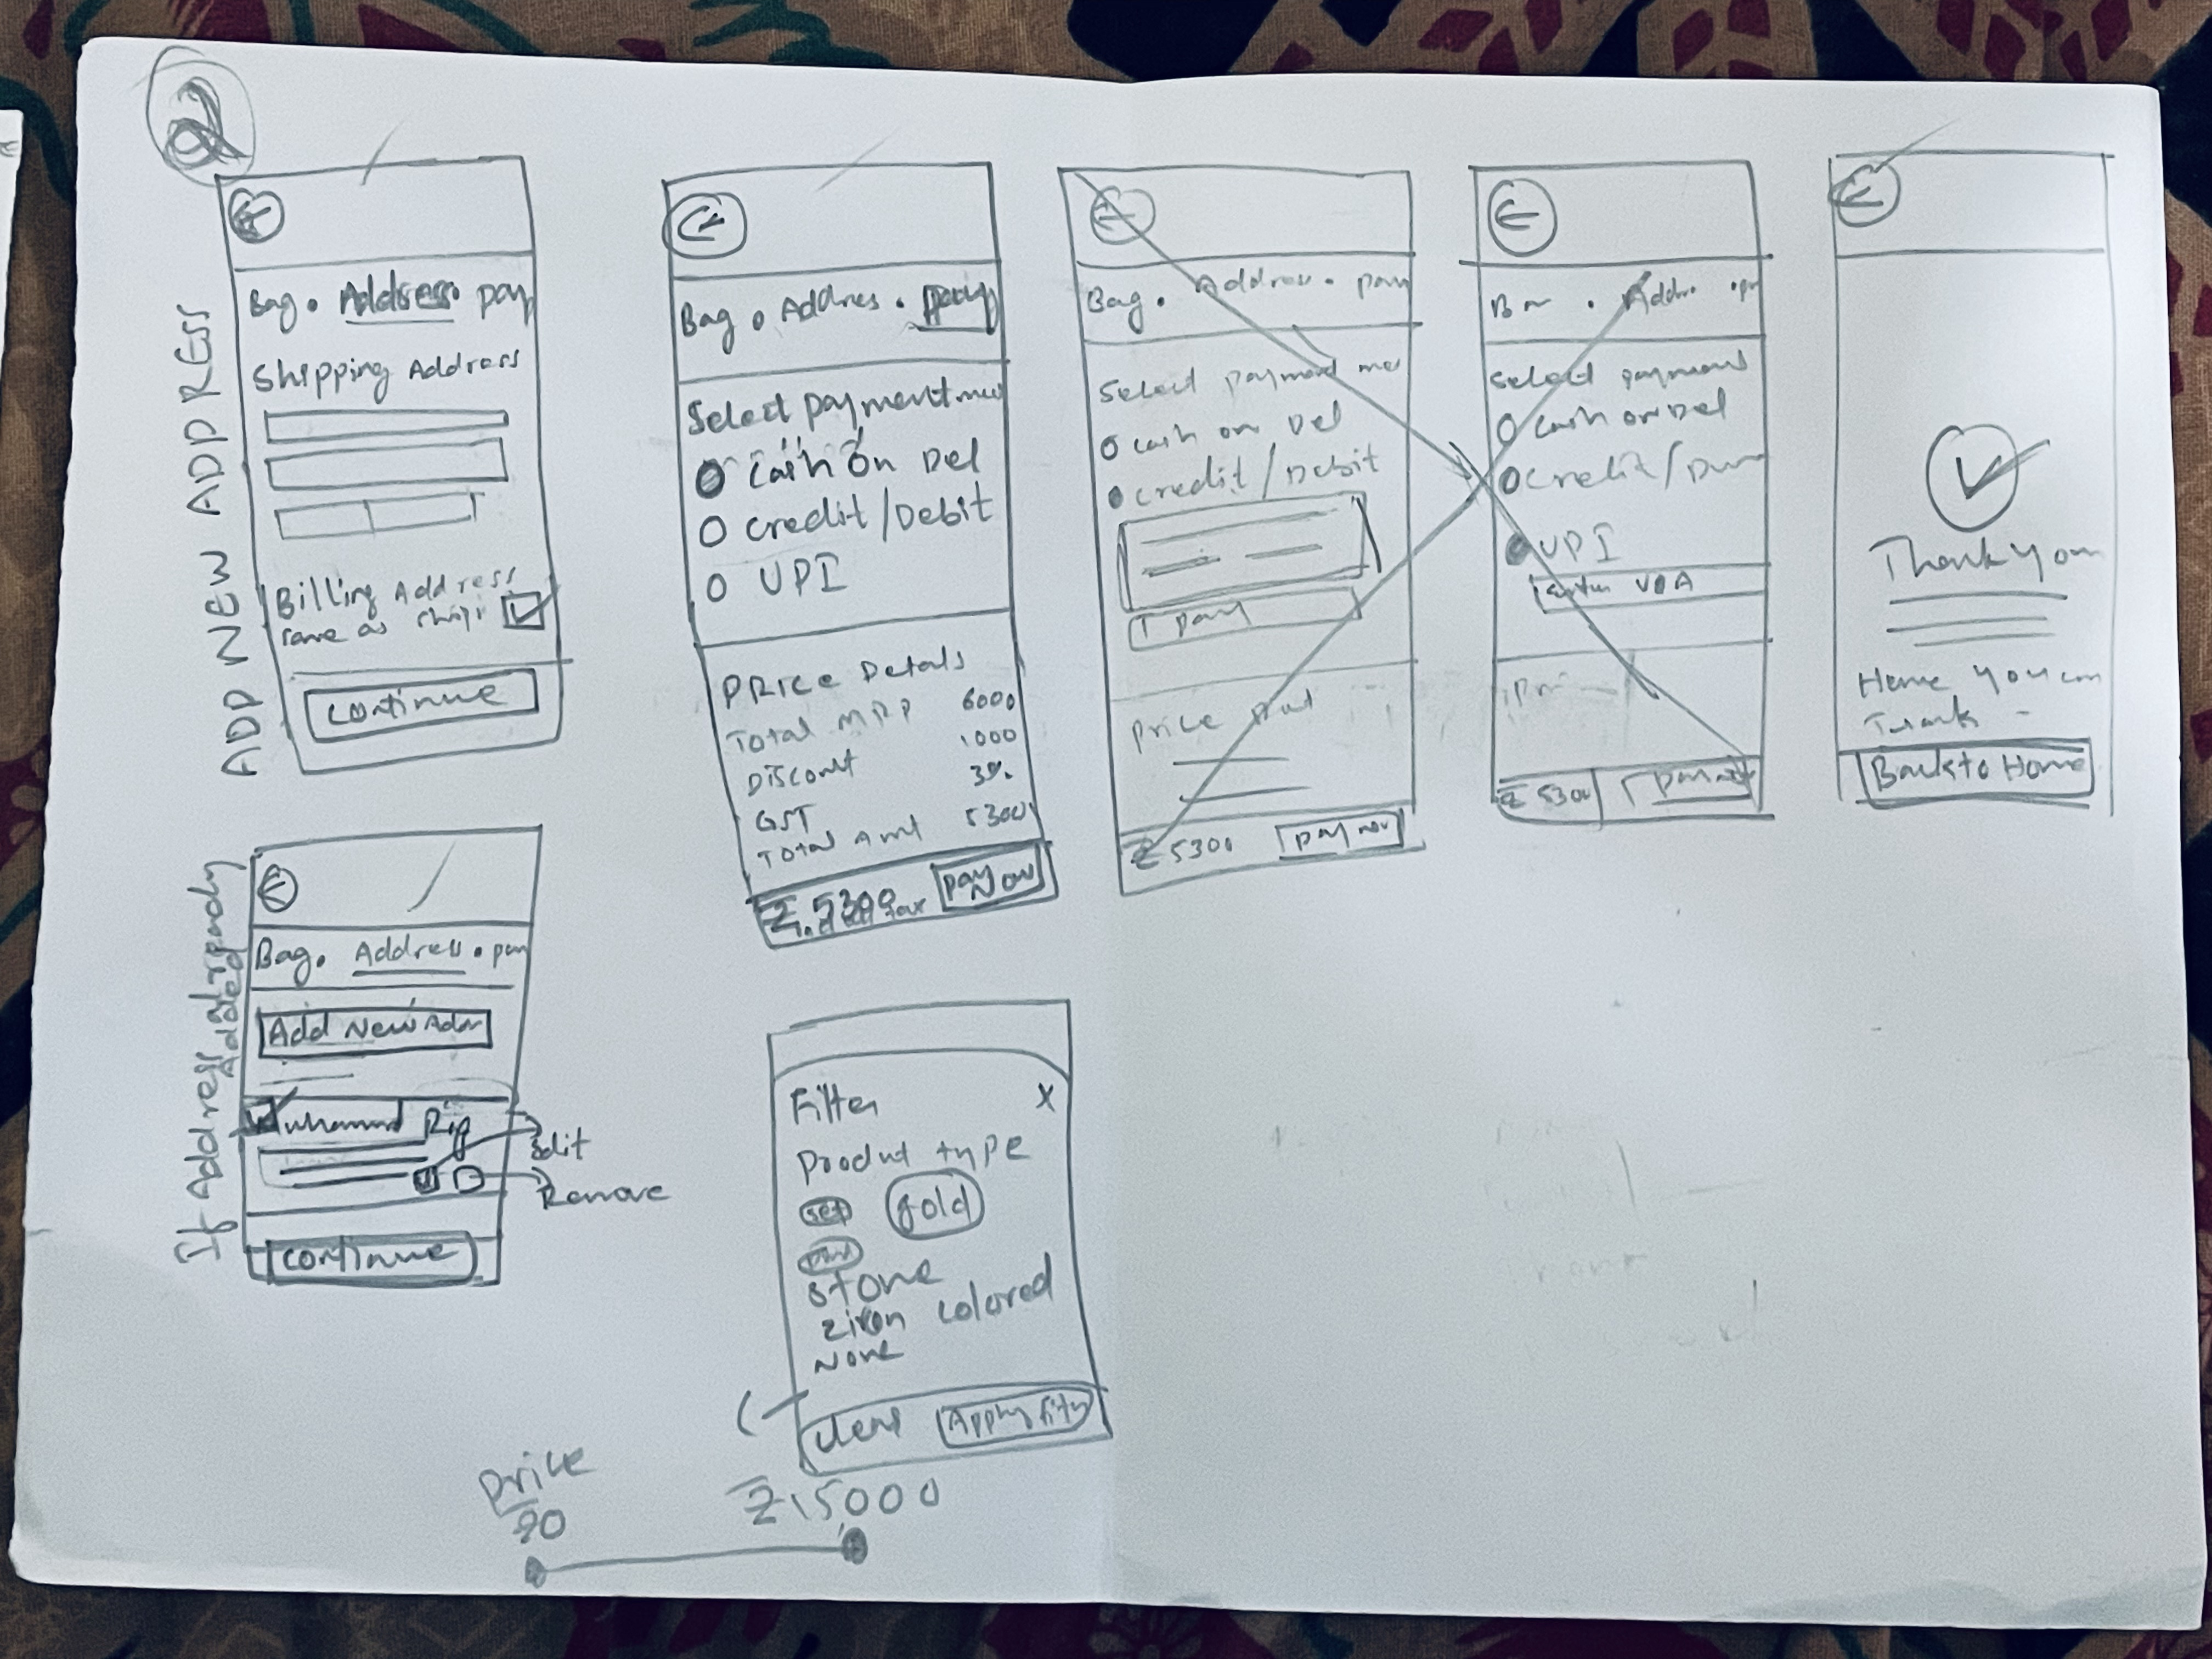 2
ADD NEW ADDRESS
Bag . Address . pay
Shipping Address
Billing Address
same as ship:
Continue
Bag . Addres . pay
Select payment
Cash On Del
Credit / Debit
UPI
PRICE Details
Total MRP 6000
Discount 1000
GST 3%
Total Amt 5300
₹ 5300
pay Now
Bag . Address . pay
Select payment
Cash on Del
Credit / Debit
pay
Price
₹ 5300 pay now
Select payment
Cash on Del
Credit /
UPI
VPA
₹ 5300
Thank you
Back to Home
If Address already
Added
Bag . Address . pay
Add New Addr
Edit
Remove
Continue
Filter X
Product type
set gold
Stone
colored
None
Clear Apply
Price
₹0 ₹15000